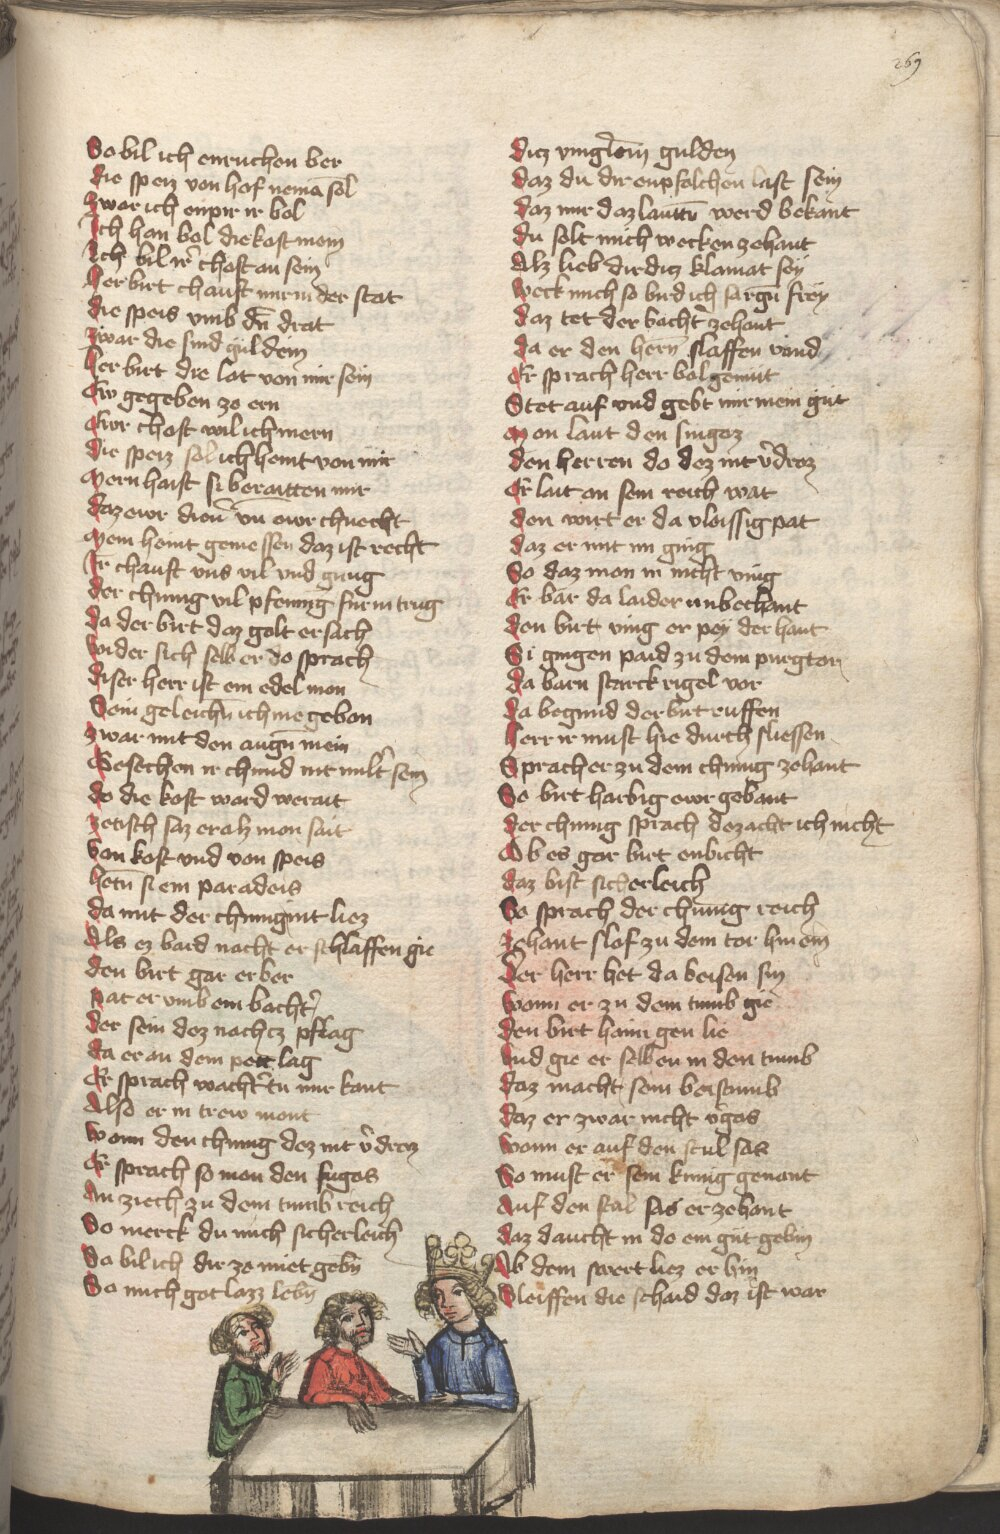 269
So bil ich enruchen ber
die speiz von hof nemā sol
zwar ich enpir ir bol
Ich han bol die kost mein
Ich bil ir chost an sein
Her birt chauft mir in der stat
die speis vmb dn̄ drat
zwar die sind guldein
her birt die lat von mir sein
Ew gegeben zo ern
Ewr chost wil ich mern
die speiz sol ich heint von mir
gern haist si beraitten mir
daz ewr dieu vn̄ ewr chnecht
Mein heint geniessen daz ist recht
Ir chauft vns vil vnd gnug
der chunig vil pfennig fur in trug
da der birt daz golt ersach
bider sich selb er do sprach
diser herr ist ein edel mon
Sein geleichn̄ ich nie gebon
zwar mit den augn̄ mein
Gesechen ir chund nit milt sein
do die kost ward werait
ze tisch saz er alz mon sait
Von kost vnd von speis
hetn̄ si ein paradeis
da mit der chunig nit liez
Als ez bard nacht er schlaffen gie
den birt gar erber
pat er vmb ein bachtr̄
der sein dez nachcz pflag
da er an dem pett lag
Er sprach wachtr̄ tu mir kant
Also er in trew mont
Wonn den chunig dez nit v̄droz
Er sprach so mon den sugos
An ziech zu dem tumb reich
So merck du mich sicherleich
Da bil ich dir ze miet gebn̄
So mich got lazz lebn̄
dicz vingerlein gulden
daz du dir enpfolchen last sein
daz mir daz lauttn̄ werd bekant
du solt mich wecken zehant
Alz lieb dir dicz klainat sey
Weck mich so bird ich sargn̄ frey
daz tet der bachtr̄ zehant
da er den hern̄ slaffen vand
Er sprach herr bolgemut
Stet auf vnd gebt mir mein gut
Mon laut den singoz
den herren do dez nit v̄droz
Er lait an sein reich wat
den wirt er da vleissig pat
daz er mit im ging
So daz mon in nicht ving
Er bar da laider unbechant
den birt ving er pey der hant
Si gingen paid zu dem purgtor
da barn starck rigel vor
da begund der birt ruffen
herr ir must hie durch sliessen
Sprach er zu dem chunig zehant
So birt harbig ewr gebant
der chunig sprach dez acht ich nicht
Ob es gar birt enbicht
daz bist sicherleich
So sprach der chunig reich
zehant slof zu dem tor hin ein
Der herr het da beisen sin
wonn er zu dem tumb gie
den birt haim gen lie
Vnd gie er selben in den tumb
daz macht sein beistumb
daz er zwar nicht v̄gas
wonn er auf den stul sas
So must er sein kunig genant
Auf den stul sas er zehant
daz daucht in do ein gut gebin
Ab dem swert liez er hin
Sleiffen die schaid daz ist war